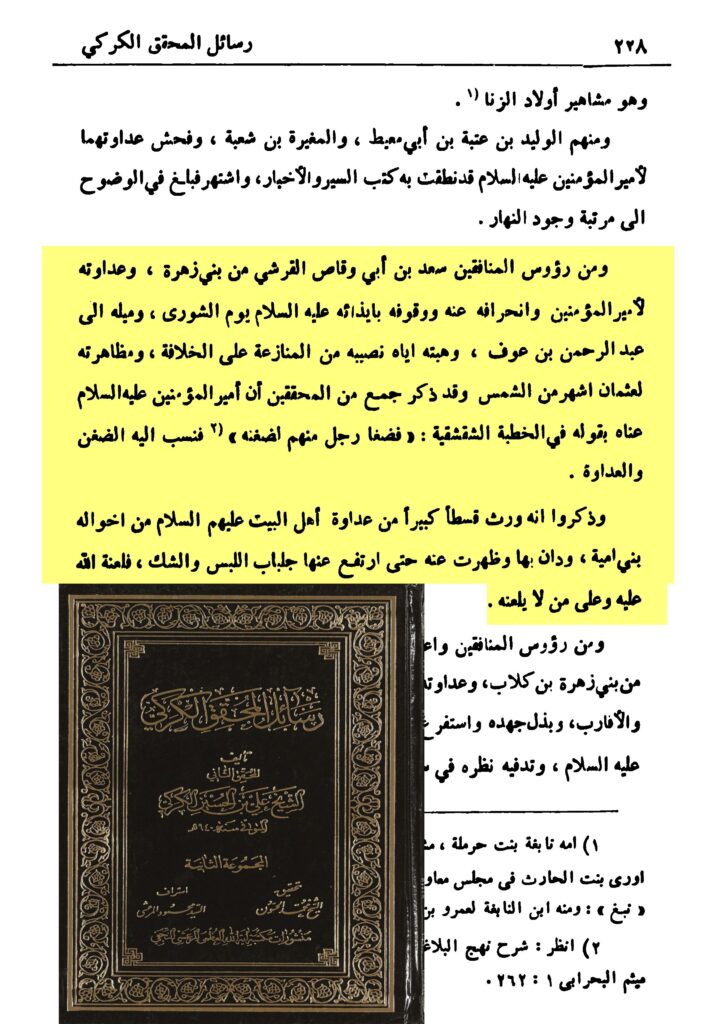 ٢٢٨
رسائل المحقق الكركي
وهو مشاهير أولاد الزنا ١) .
ومنهم الوليد بن عتبة بن أبي معيط ، والمغيرة بن شعبة ، وفحش عداوتهما
لأمير المؤمنين عليه السلام قد نطقت به كتب السير والأخيار، واشتهر فبلغ في الوضوح
الى مرتبة وجود النهار .
ومن رؤوس المنافقين سعد بن أبي وقاص القرشي من بني زهرة ، وعداوته
لأمير المؤمنين وانحرافه عنه ووقوفه بايذائه عليه السلام يوم الشورى ، وميله الى
عبد الرحمن بن عوف ، وهبته اياه نصيبه من المنازعة على الخلافة ، ومظاهرته
لعثمان اشهر من الشمس وقد ذكر جمع من المحققين أن أمير المؤمنين عليه السلام
عناه بقوله في الخطبة الشقشقية : « فضغا رجل منهم لضغنه » ٢) فنسب اليه الضغن
والعداوة .
وذكروا انه ورث قسطاً كبيراً من عداوة أهل البيت عليهم السلام من اخواله
بني امية ، ودان بها وظهرت عنه حتى ارتفع عنها جلباب اللبس والشك ، فلعنة الله
عليه وعلى من لا يلعنه .
ومن رؤوس المنافقين واعـ
من بني زهرة بن كلاب، وعداوته
والأقارب، وبذل جهده واستفرغ
عليه السلام ، وتدقيه نظره في
١) امه نابغة بنت حرملة ،
اورى بنت الحارث فى مجلس معاو
« نبغ » : ومنه ابن النابغة لعمرو بن
٢) انظر : شرح نهج البلاغ
ميثم البحرابى ١ : ٢٦٢ .
رسائل المحقق الكركي
تأليف
المحقق الثاني
الشيخ علي بن الحسين الكركي
المتوفى سنة ٩٤٠ هـ
المجموعة الثانية
تحقيق
الشيخ محمد الحسون
اشراف
السيد محمود المرعشي
منشورات مكتبة آية الله العظمى المرعشي النجفي